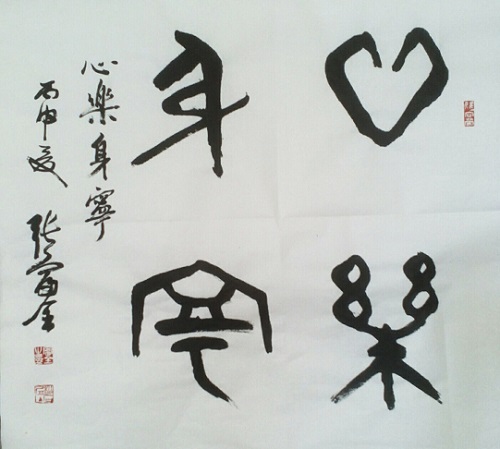 心樂
身寧
心樂身寧
丙申夏